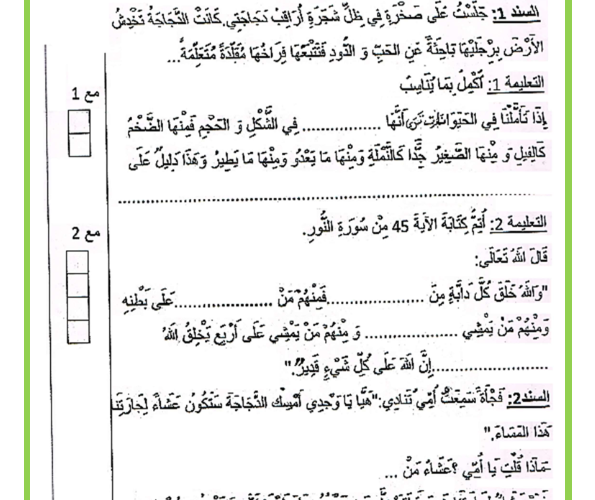 السند 1: جَلَسْتُ عَلَى صَخْرَةٍ فِي ظِلِّ شَجَرَةٍ أُرَاقِبُ دَجَاجَتِي. كَانَتْ الدَّجَاجَةُ تَخْدِشُ
الأَرْضَ بِرِجْلَيْهَا بَاحِثَةً عَنِ الحَبِّ وَ الدُّودِ فَتَتْبَعُهَا فِرَاخُهَا مُقَلِّدَةً مُتَعَلِّمَةً...
التعليمة 1: أُكْمِلُ بِمَا يُنَاسِبُ
مع 1
إِذَا تَأَمَّلْنَا فِي الحَيَوَانَاتِ نَرَى أَنَّهَا ................ فِي الشَّكْلِ وَ الحَجْمِ فَمِنْهَا الضَّخْمُ
كَالفِيلِ وَ مِنْهَا الصَّغِيرُ جِدًّا كَالنَّمْلَةِ وَمِنْهَا مَا يَعْدُو وَمِنْهَا مَا يَطِيرُ وَهَذَا دَلِيلٌ عَلَى
................................................................
التعليمة 2: أُتِمُّ كِتَابَةَ الآيَةَ 45 مِنْ سُورَةِ النُّورِ.
مع 2
قَالَ اللهُ تَعَالَى:
"وَاللهُ خَلَقَ كُلَّ دَابَّةٍ مِنْ ...................فَمِنْهُمْ مَنْ ...................عَلَى بَطْنِهِ
وَمِنْهُمْ مَنْ يَمْشِي .................. وَ مِنْهُمْ مَنْ يَمْشِي عَلَى أَرْبَعٍ يَخْلِقُ اللهُ
......................إِنَّ اللهَ عَلَى كُلِّ شَيْءٍ قَدِيرٌ."
السند2: فَجْأَةً سَمِعْتُ أُمِّي تُنَادِي:"هَيَّا يَا وَجْدِي أَمْسِك الدَّجَاجَةَ سَتَكُونُ عَشَاءً لِجَارَتِنَا
هَذَا المَسَاءَ."
-مَاذَا قُلْتِ يَا أُمِّي ؟عَشَاءُ مَنْ ...